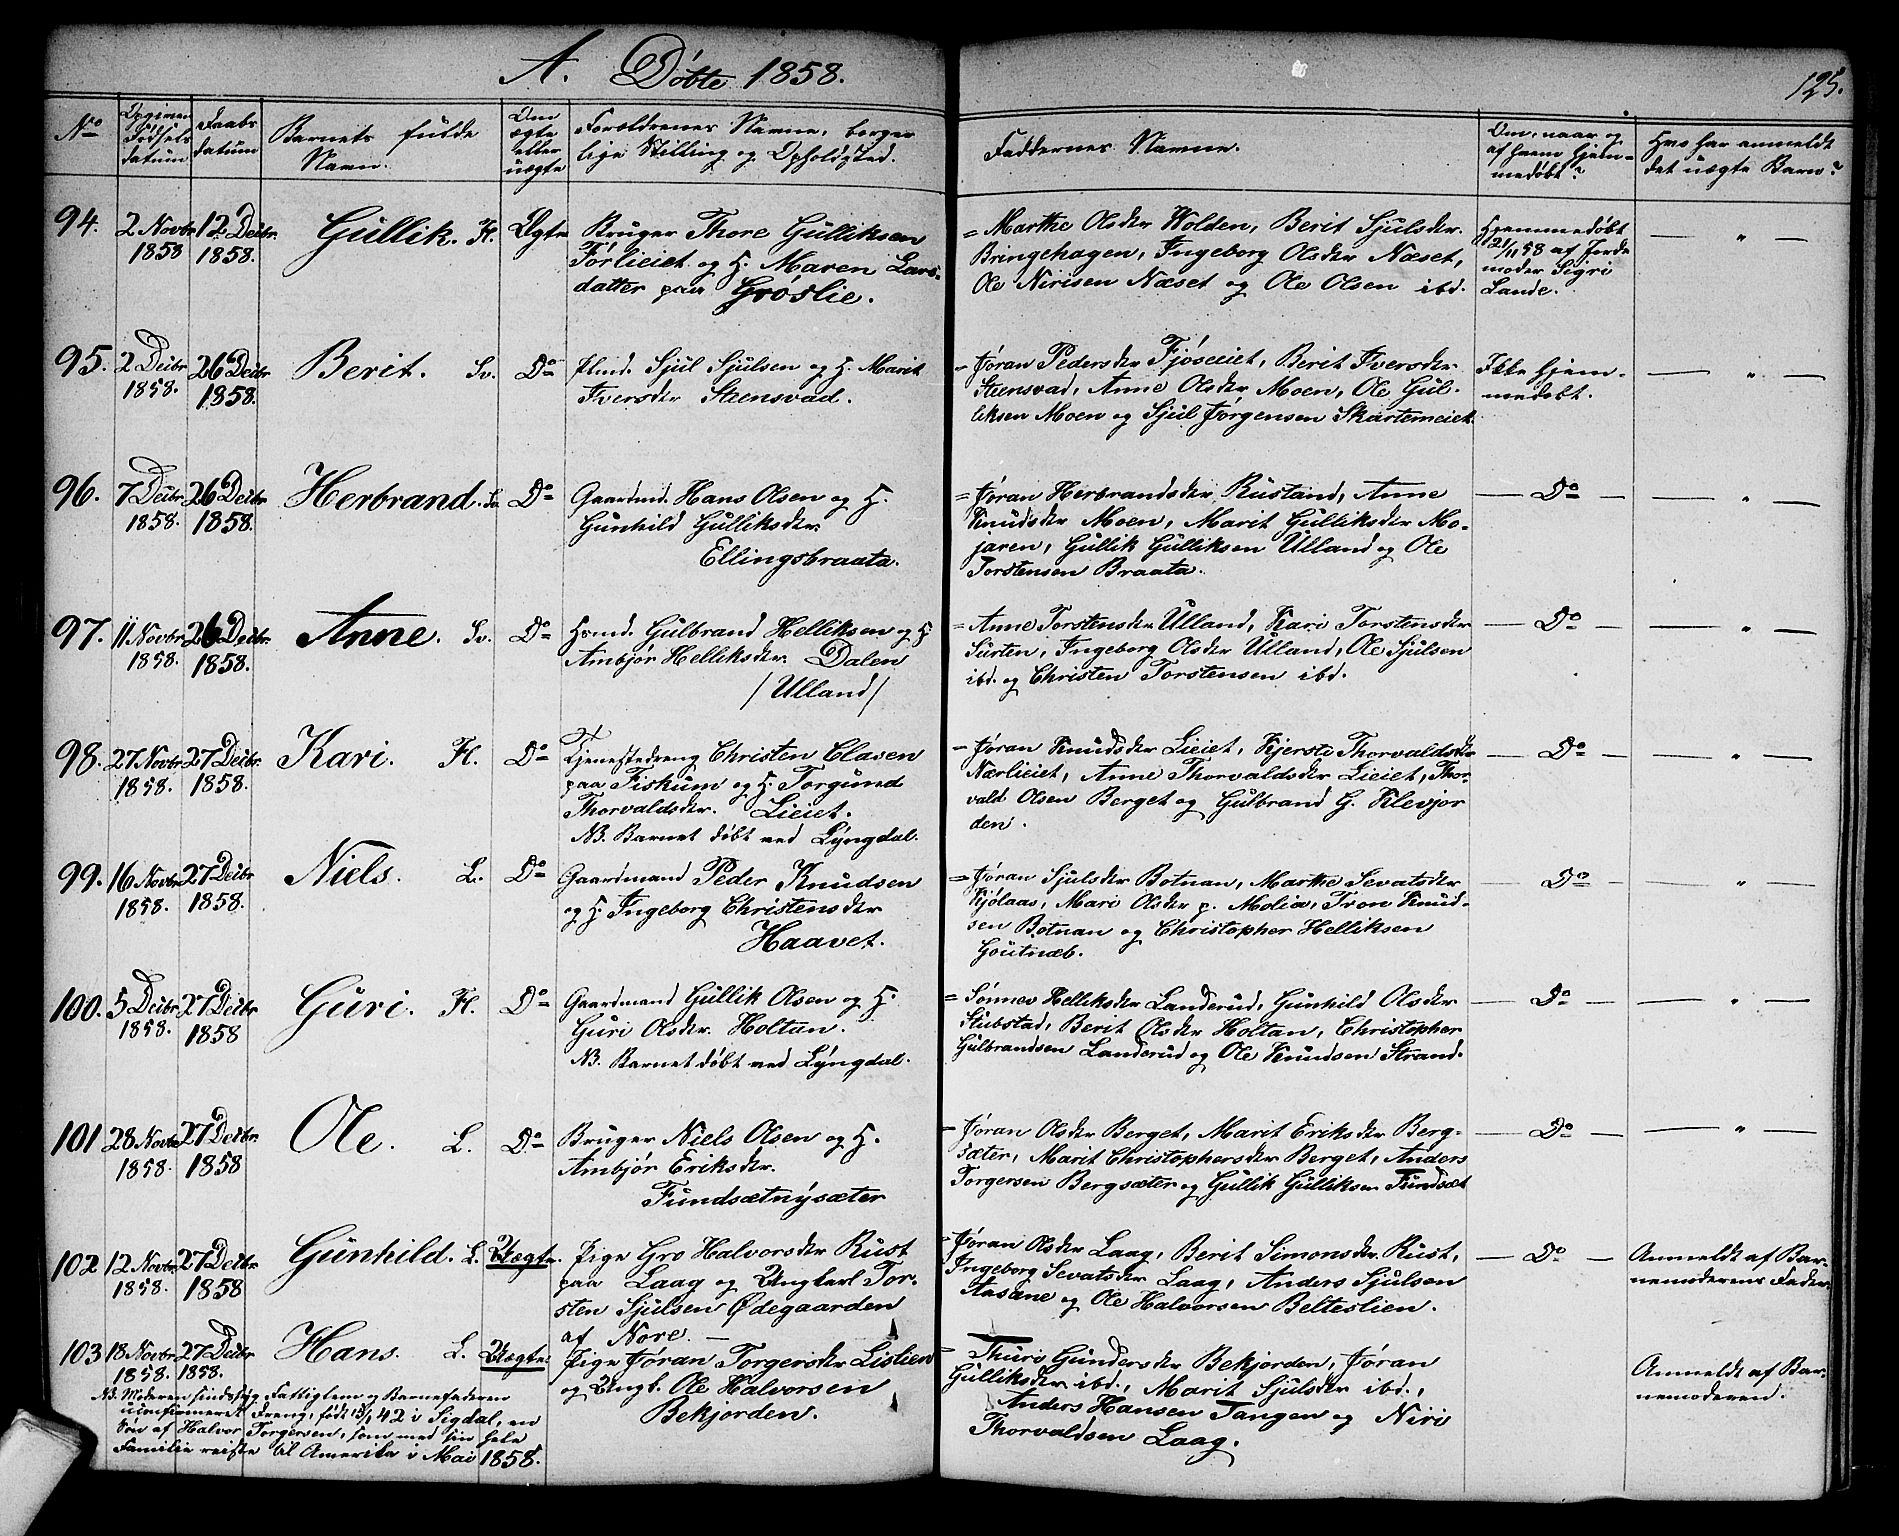 A. Døbte 1858.
125.
No
Fødsels
datum
Daabs
datum
Barnets fulde
Navn.
Om
ægte
eller
uægte
Forældrenes Navne, borger
lige Stilling og Opholdssted.
Faddernes Navne.
Om, naar og
af hvem hjem=
medøbt?
Hvo har anmeldt
det uægte Barn?
94. 2 Novbr 1858 12 Decbr. 1858. Gullik. Ægte
Bruger Thore Gulliksen
Forlieiet og H. Maren Lars=
datter paa Grøslie.
= Marthe Olsdtr Wolden, Berit Sjulsdtr.
Bringehagen, Ingeborg Olsdtr Næset,
Ole Nirisen Næset og Ole Olsen ibd.
Hjemmedøbt
21/11 58 af Jorde
moder Sigri
Lande.
— " —
95. 2 Decbr 1858. 26 Decbr 1858. Berit. Sv. Do
Sjul Sjulsen og H. Marit
Iversdtr Steensvad.
= Jøran Pedersdtr Fjøseiet, Berit Iversdtr
Steensvad, Anne Olsdtr Moen, Ole Gul=
liksen Moen og Sjul Jørgensen Skartemeiet.
Ikke hjem=
medøbt.
— " —
96. 7 Decbr 1858. 26 Decbr 1858. Herbrand. Sv. Do
Gaardmd. Hans Olsen og H.
Gunhild Gulliksdtr.
Ellingsbraata.
= Jøran Herbrandsdtr Rustand, Anne
Knudsdtr Moen, Marit Gulliksdtr Mo=
jaren, Gullik Gulliksen Ulland og Ole
Torstensen Braata.
— Do —
— " —
97. 11 Novbr 1858. 26 Decbr 1858. Anne. Sv. Do
Gulbrand Helliksen og H
Ambjør Helliksdtr. Dalen
/Ulland/
= Anne Torstensdtr Ulland, Kari Torstensdtr
Surten, Ingeborg Olsdtr Ulland, Ole Sjulsen
ibd. og Christen Torstensen ibd.
— Do —
— " —
98. 27 Novbr 1858. 27 Decbr. 1858. Kari. Fl. Do
Tjenestedreng Christen Clasen
paa Fiskum og H. Torgund
Thorvaldsdtr. Lieiet.
NB. Barnet døbt ved Lyngdal.
= Jøran Knudsdtr Lieiet, Kjersti Thorvaldsdtr
Nærlieiet, Anne Thorvaldsdtr Lieiet, Thor=
vald Olsen Berget og Gulbrand G. Klevjor
den.
— Do —
— " —
99. 16 Novbr 1858. 27 Decbr 1858. Niels. L. Do
Gaardmand Peder Knudsen
og H. Ingeborg Christensdtr
Haavet.
= Jøran Sjulsdtr Botnan, Marthe Sevatsdtr
Kjølaas, Mari Olsdtr p. Molia, Iven Knud=
sen Botnan og Christopher Helliksen
Goutnæb.
— Do —
— " —
100. 5 Decbr 1858. 27 Decbr 1858 Guri. Fl. Do
Gaardmand Gullik Olsen og H.
Guri Olsdtr. Holtan.
NB. Barnet døbt ved Lyngdal.
= Sønnev Helliksdtr Landerud, Gunhild Olsdtr
Stubstad, Berit Olsdtr Holtan, Christopher
Gulbrandsen Landerud og Ole Knudsen Strand.
— Do —
— " —
101 28 Novbr 1858. 27 Decbr. 1858 Ole. L. Do
Bruger Niels Olsen og H.
Ambjør Eriksdtr.
Fundsætnysæter
= Jøran Olsdtr Berget, Marit Eriksdtr Berg=
sæter, Marit Christophersdtr Berget, Anders
Torgersen Bergsæter og Gullik Gulliksen Fundsæt
— Do —
— " —
102 12 Novbr 1858. 27 Decbr. 1858 Gunhild. L. Uægte.
Pige Gro Halvorsdtr Rust
paa Laag og Ungkarl Tor=
sten Sjulsen Ødegaarden
af Nore. —
= Jøran Olsdtr Laag, Berit Simonsdtr Rust,
Ingeborg Sevatsdtr Laag, Anders Sjulsen
Aasane og Ole Halvorsen Belteslien.
— Do —
Anmeldt af Bar=
nemoderens Fader.
103 18 Novbr 1858. 27 Decbr 1858. Hans. L. Uægte.
Pige Jøran Torgersdtr Lislien
og Ungk. Ole Halvorsen
Bekjorden.
= Thuri Gundersdtr Bekjorden, Jøran
Gulliksdtr ibd., Marit Sjulsdtr ibd.,
Anders Hansen Tangen og Niri
Thorvaldsen Laag.
Anmeldt af Bar=
nemoderen.
NB. Moderen sindssyg Fattiglem og Barnefaderen
uconfirmeret Dreng, født 42 i Sigdal, en
Søn af Halvor Torgersen, som med sin hele
Familie reiste til Amerika i Mai 1858.